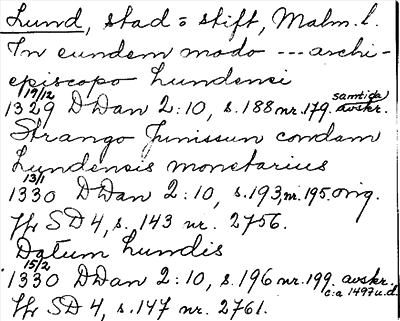 Lund, stad o stift, Malm. l.
In eundem modo --- archi-
episcopo Lundensi
19/12
1329 DDan 2:10, s. 188 nr. 179. samtida avskr.
Strango Junissun condam
Lundensis monetarius
13/1
1330 DDan 2:10, s. 193, nr. 195. orig.
Jfr SD 4, s. 143 nr. 2756.
Datum Lundis
15/2
1330 DDan 2:10, s. 196 nr. 199. avskr. c:a 1497 u.d.
Jfr SD 4, s. 147 nr. 2761.